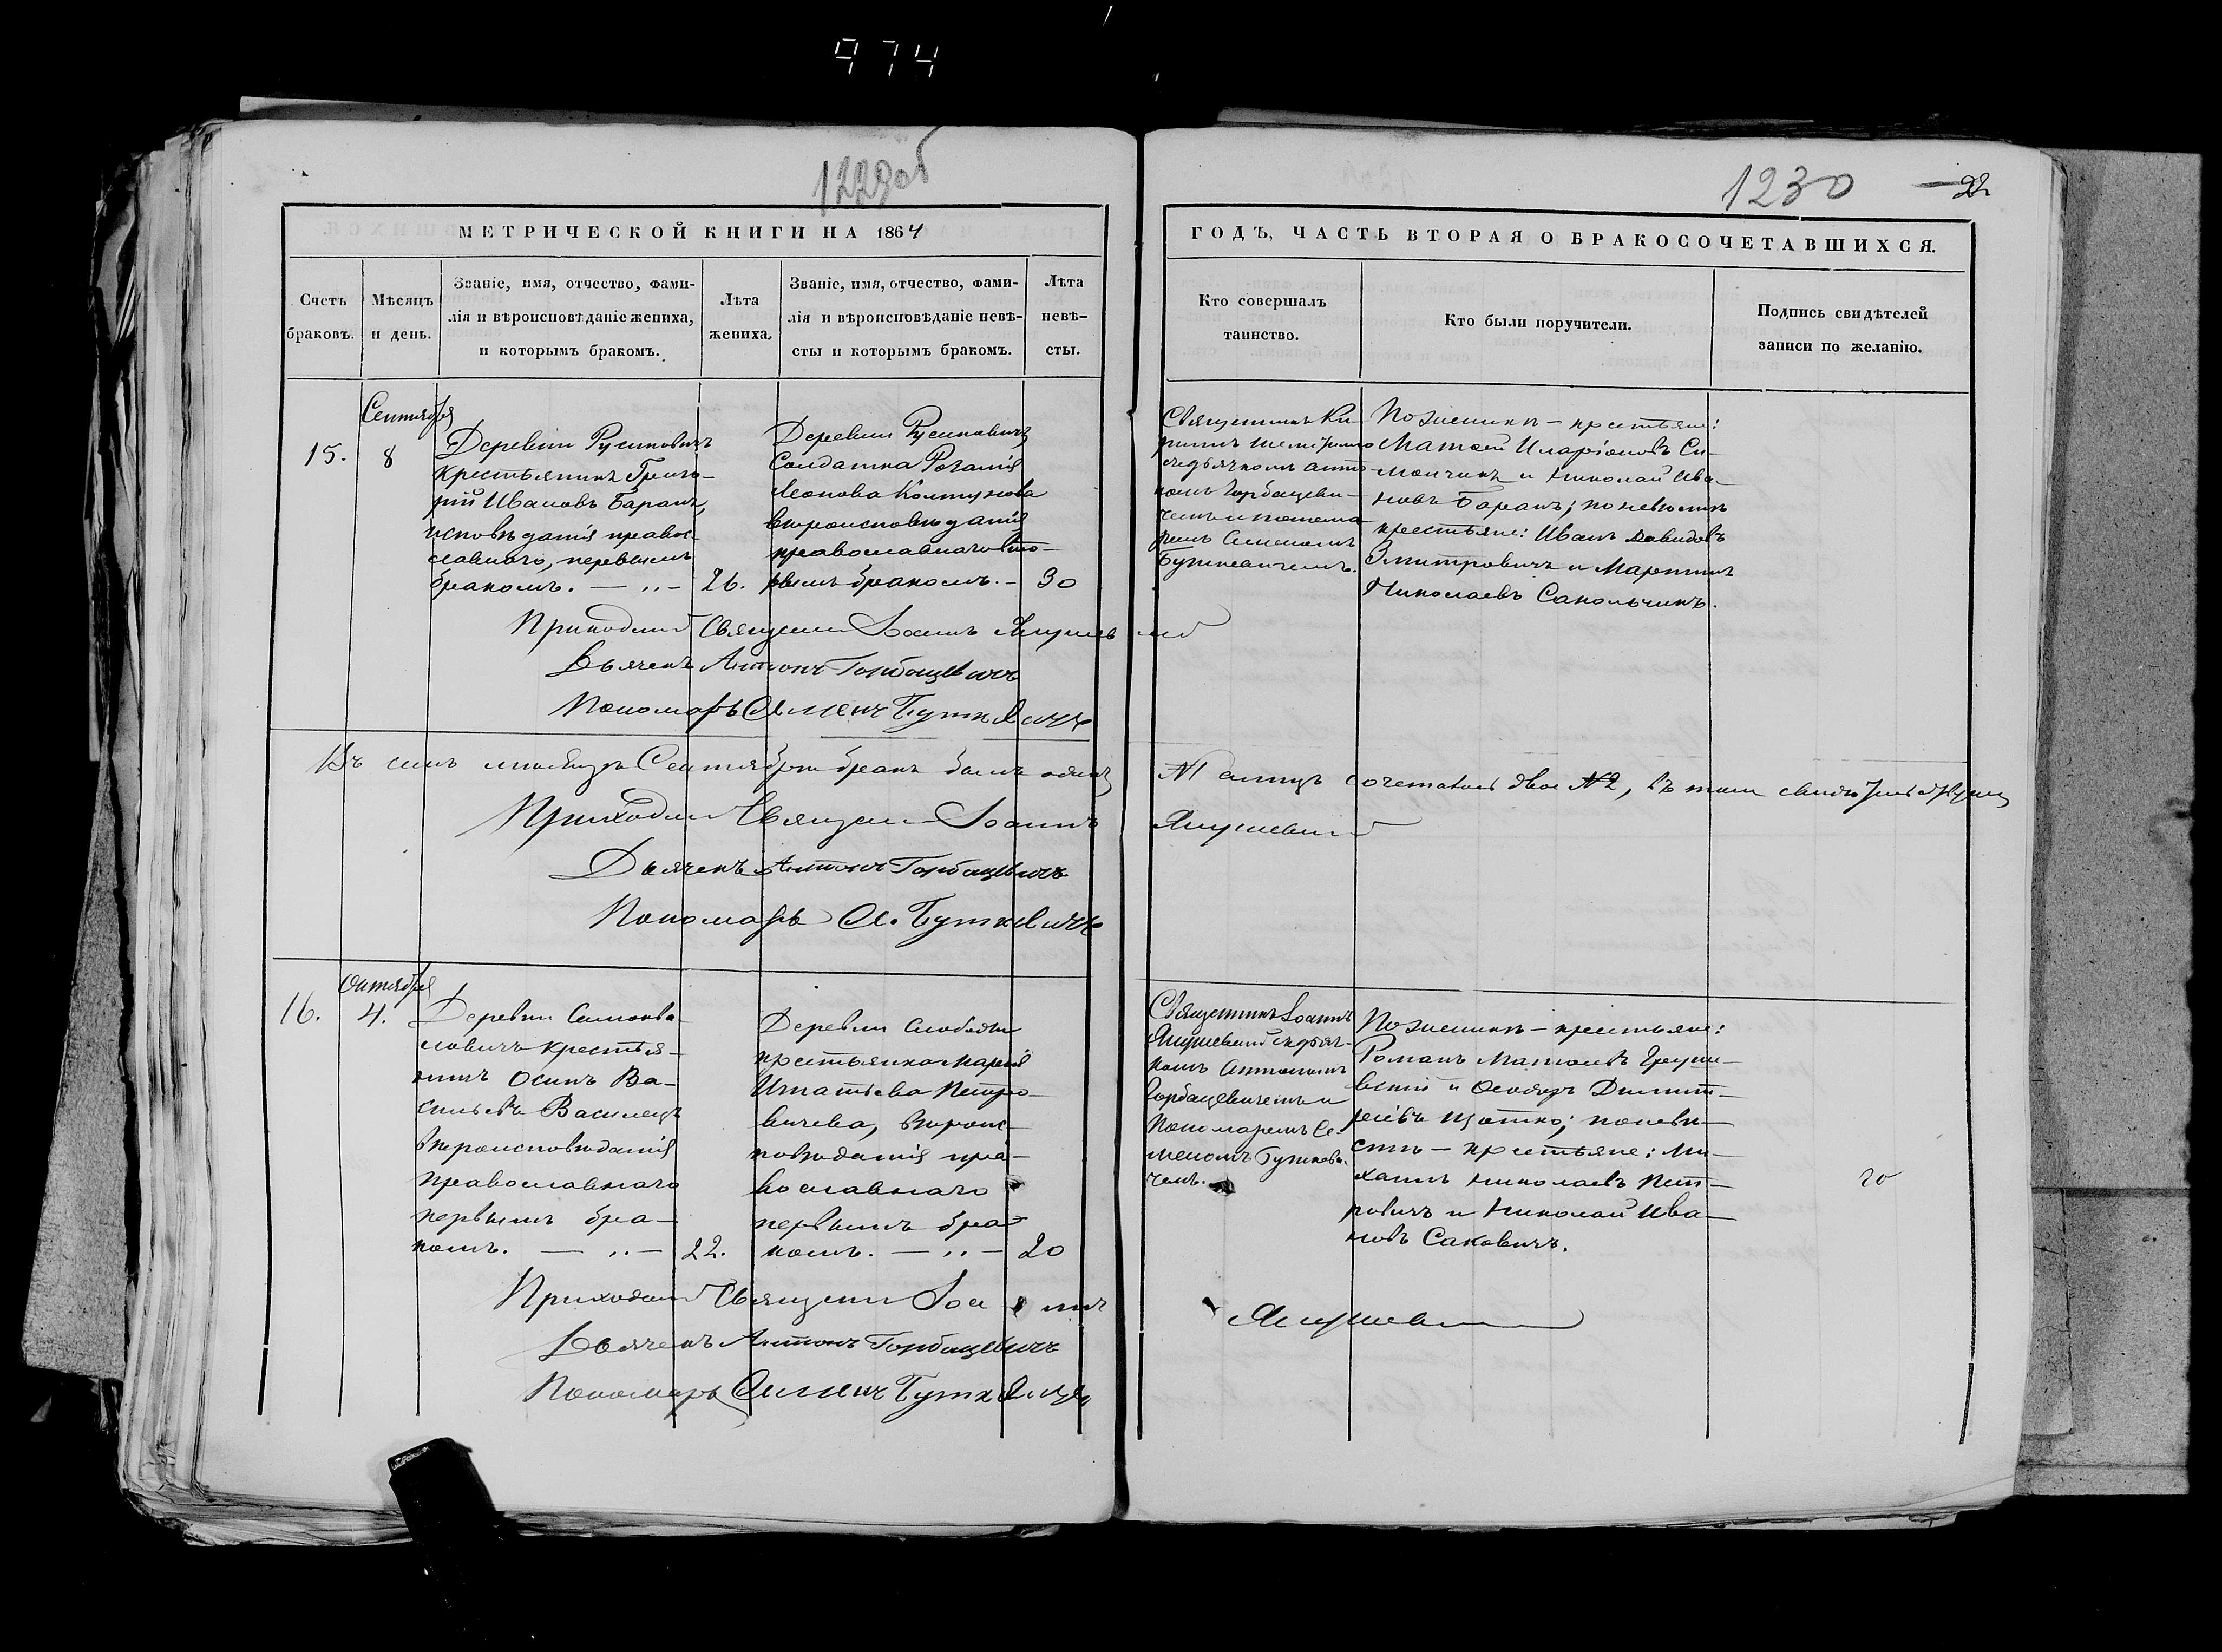 974
1229об
1230
22
МЕТРИЧЕСКОЙ КНИГИ НА 1864
ГОДЪ, ЧАСТЬ ВТОРАЯ О БРАКОСОЧЕТАВШИХСЯ.
Счетъ
браковъ.
Мѣсяцъ
и день.
Званіе, имя, отчество, фами-
лія и вѣроисповѣданіе жениха,
и которымъ бракомъ.
Лѣта
жениха.
Званіе, имя, отчество, фами-
лія и вѣроисповѣданіе невѣ-
сты и которымъ бракомъ.
Лѣта
невѣ-
сты.
Кто совершалъ
таинство.
Кто были поручители.
Подпись свидѣтелей
записи по желанію.
15.
Сентября
8
Деревни Русиновичъ
крестьянинъ Григо-
рій Ивановъ Баранъ,
исповѣданія правос-
лавнаго, первымъ
бракомъ.
26.
Деревни Русиновичъ
Солдатка Розалія
Леонова Колтунова
вѣроисповѣданія
православнаго вто-
рымъ бракомъ.
30
Священникъ Ки-
съ дьячкомъ Анто-
номъ Горбацеви-
чемъ и понома-
ремъ Семеномъ
Буткевичемъ.
По женихѣ - крестьяне:
Матѳей Иларіоновъ Си-
мончикъ и Николай Ива-
новъ Баранъ; по невѣстѣ
крестьяне: Иванъ Давидовъ
Змитровичъ и Мартинъ
Николаевъ Сакольчикъ.
Приходскій Священникъ Іоаннъ Янушевскій
Дьячекъ Антонъ Горбацевичъ
Пономарь Семенъ Буткевичъ
Въ семъ мѣсяцѣ Сентябрѣ бракъ былъ одинъ
№1 а лицъ сочеталось двое №2, въ томъ
Приходскій Священникъ Іоаннъ
Янушевскій
Дьячекъ Антонъ Горбацевичъ
Пономарь С. Буткевичъ
16.
Октября
4.
Деревни
крестья-
нинъ Осипъ Ва-
сильевъ Василецъ
вѣроисповѣданія
православнаго
первымъ бра-
комъ.
22.
Деревни Слободы
крестьянка Марія
Игнатьева Петро-
вичева, вѣроис-
повѣданія пра-
вославнаго
первымъ бра-
комъ.
20
Священникъ Іоаннъ
Янушевскій съ дьяч-
комъ Антономъ
Горбацевичемъ и
Пономаремъ Се-
меномъ Буткеви-
чемъ.
По женихѣ - крестьяне:
Романъ Матѳеевъ
и Димит-
ріевъ Щотко; по невѣ-
стѣ - крестьяне: Ми-
хаилъ Николаевъ Пет-
ровичъ и Николай Ива-
новъ Саковичъ.
20
Приходскій Священникъ Іоаннъ
Янушевскій
Дьячекъ Антонъ Горбацевичъ
Пономарь Семенъ Буткевичъ